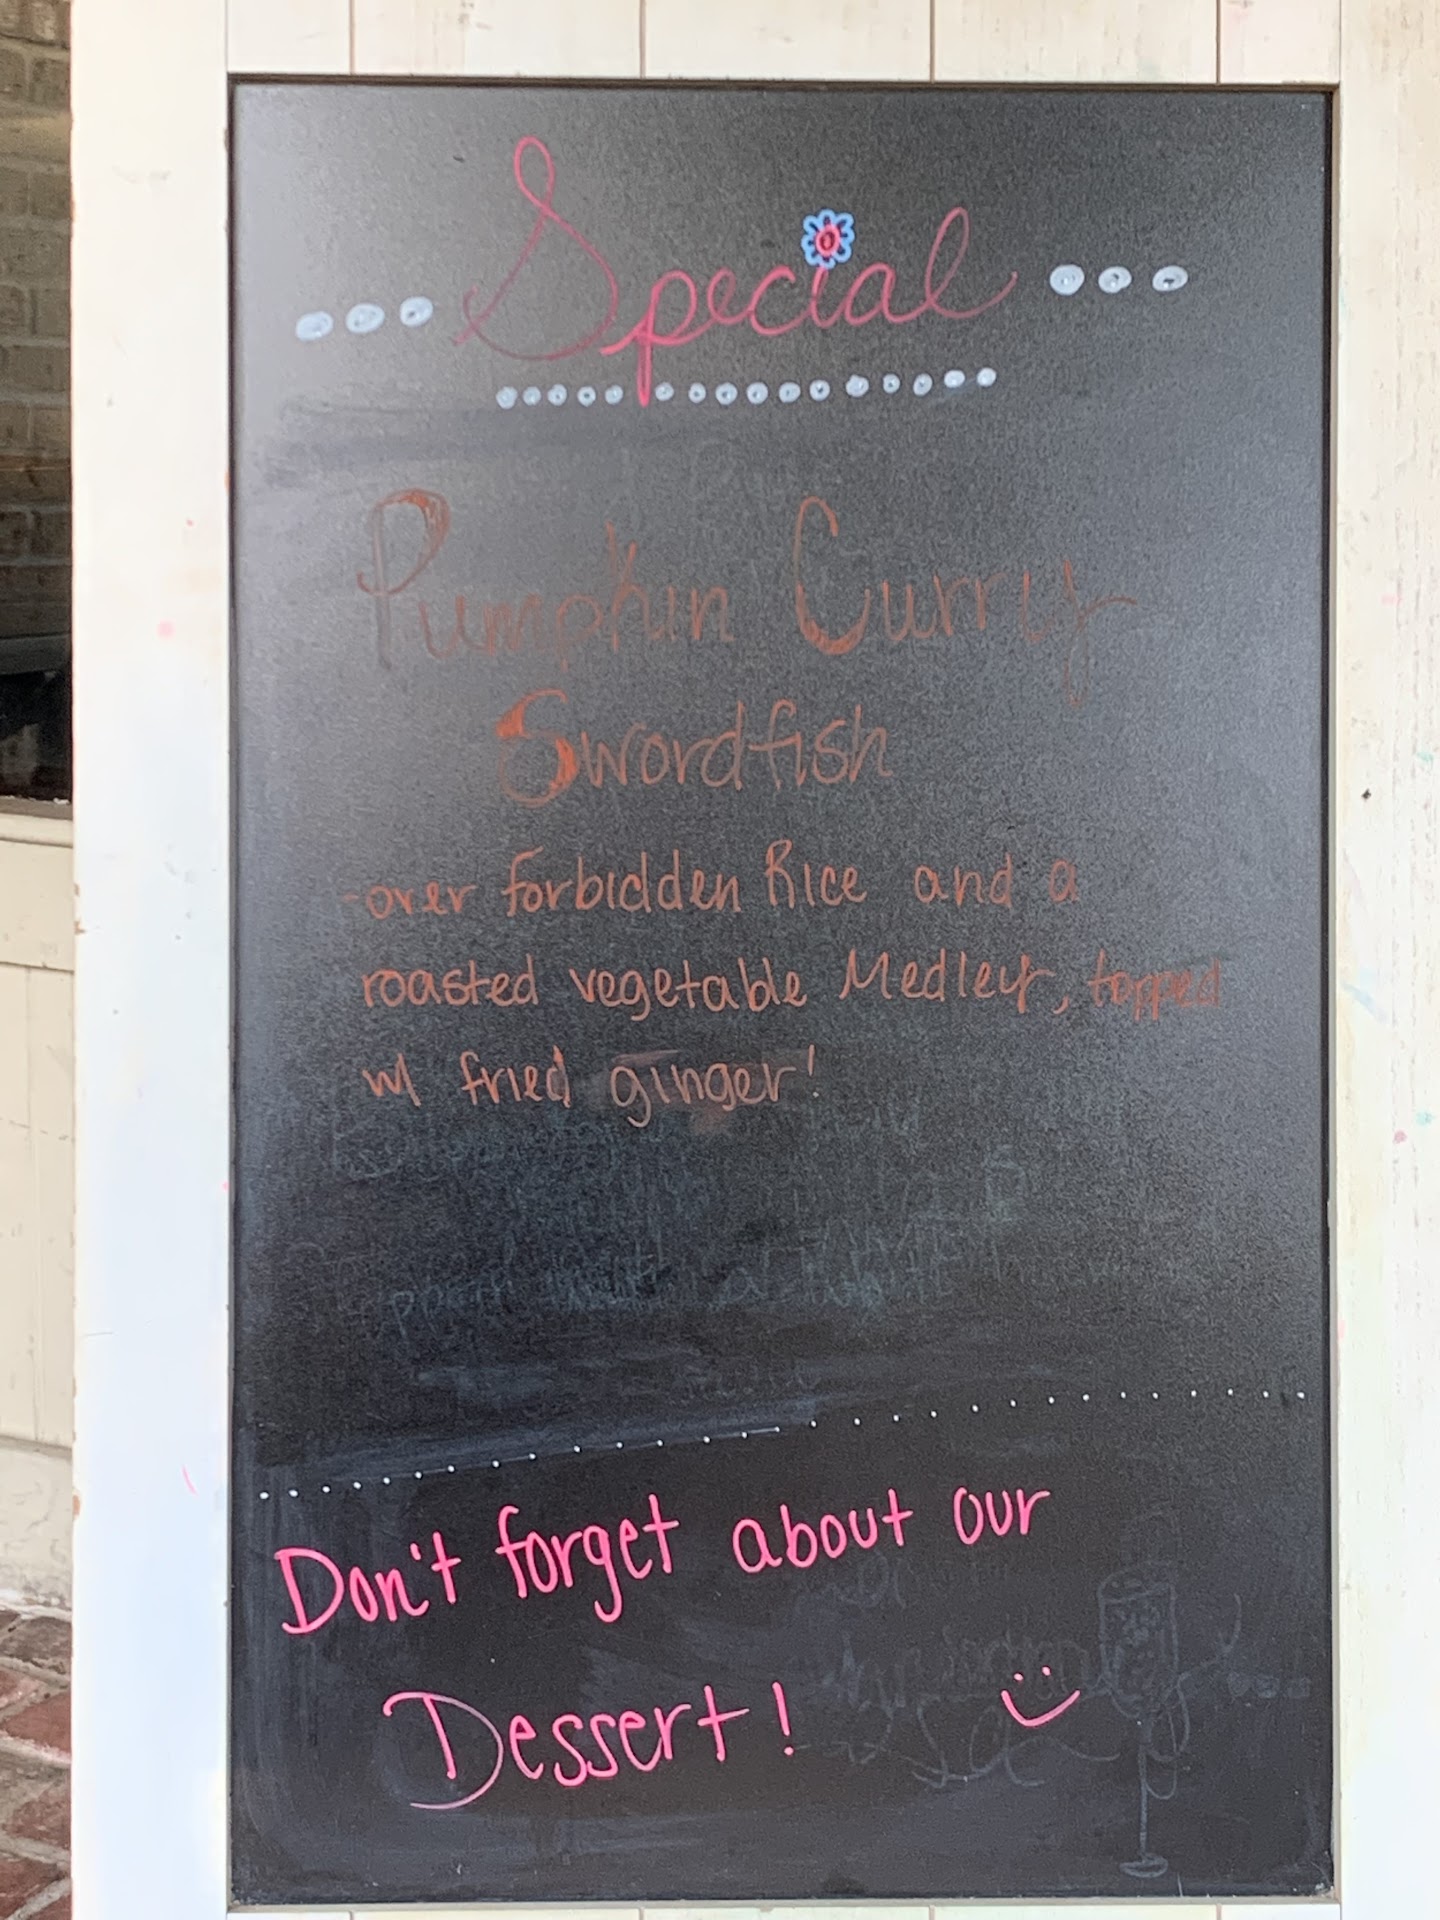 Special
Pumpkin Curry
Swordfish
-over forbidden Rice and a
roasted vegetable Medley, topped
w/ fried ginger!
Don't forget about our
Dessert!